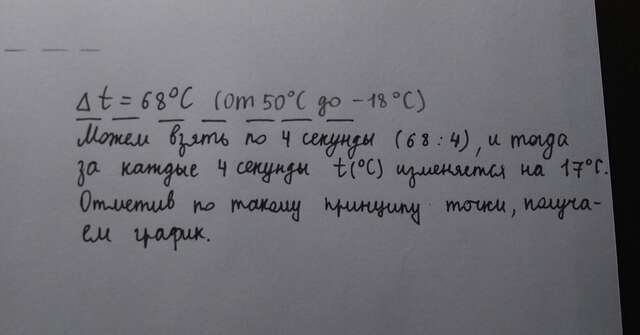 Δ t = 68°C (От 50°C до -18°C)
Можем взять по 4 секунды (68 : 4), и тогда
за каждые 4 секунды t(°C) изменяется на 17°C.
Отметив по такому принципу точки, получа-
ем график.